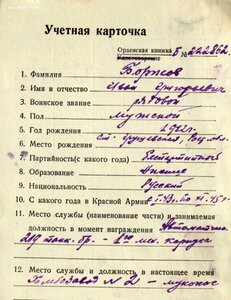 Учетная карточка
Орденская книжка Б
Удостоверение № 222862
1. Фамилия Борисов
2. Имя и отчество Иван Григорьевич
3. Воинское звание рядовой
4. Пол Мужской
5. Год рождения
6. Место рождения
7. Партийность (с какого года) Беспартийный
8. Образование Низшее
9. Национальность Русский
10. С какого года в Красной Армии
11. Место службы (наименование части) и занимаемая
должность в момент награждения Автоматчик
мех. корпуса
12. Место службы и должность в настоящее время
Хлебозавод № 2 –